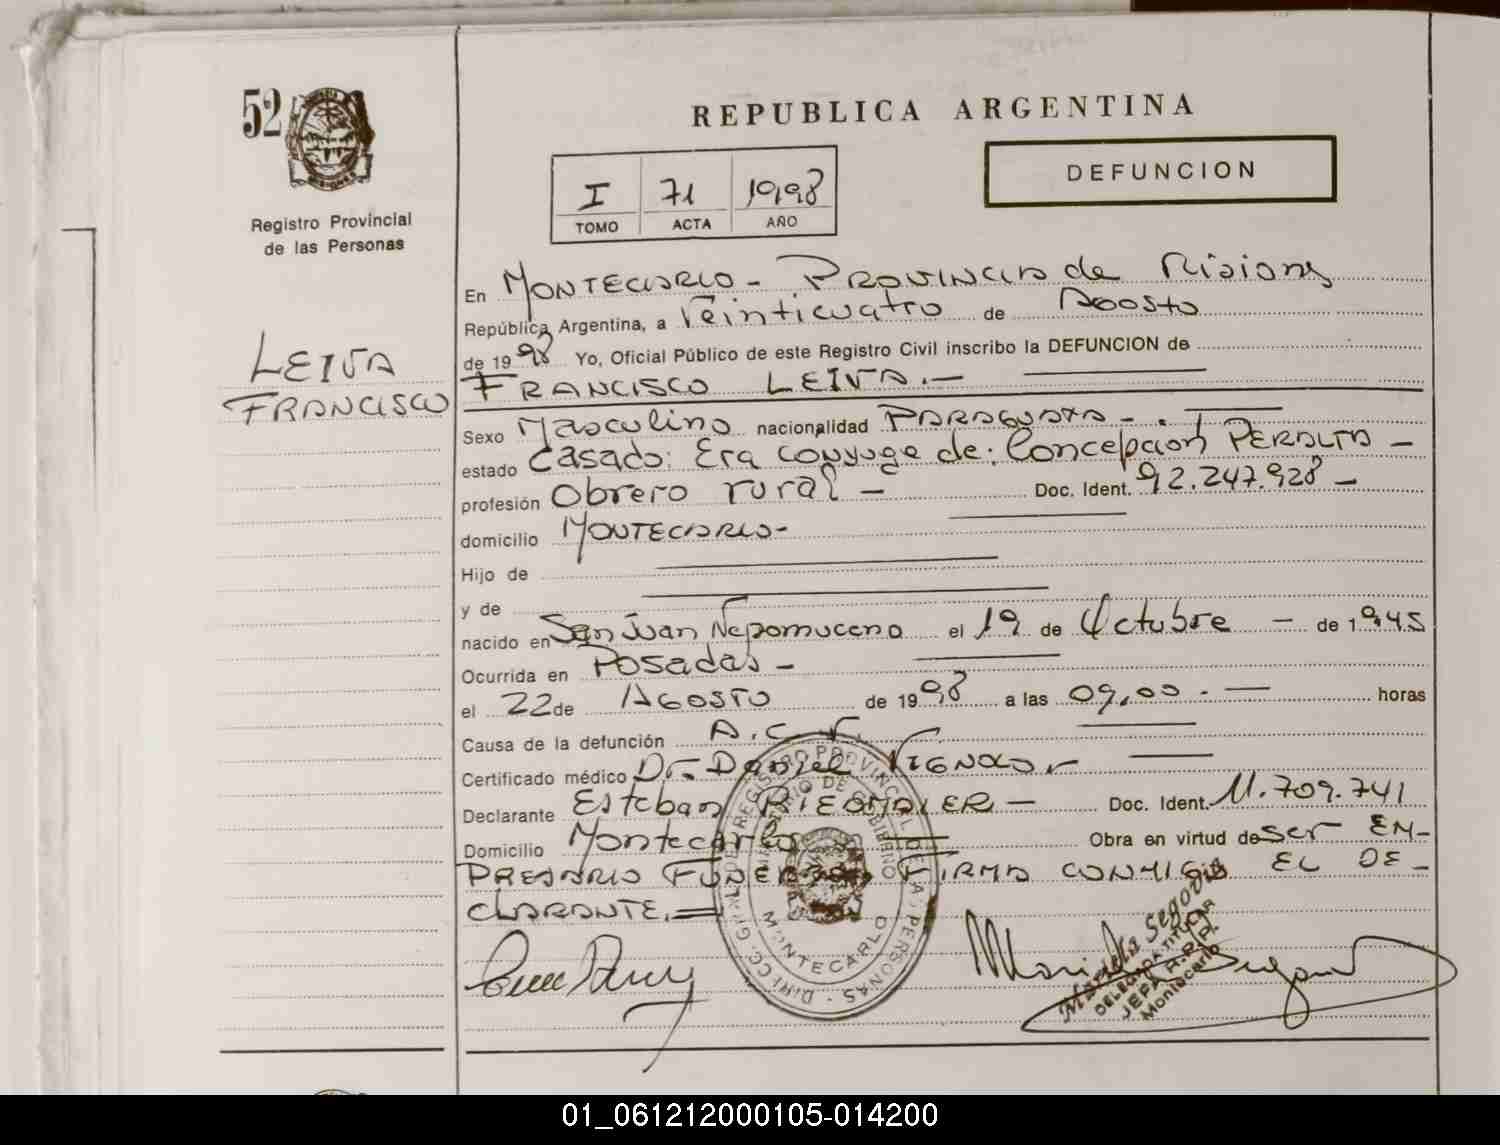 52
REPUBLICA ARGENTINA
DEFUNCION
I 71 1998
TOMO ACTA AÑO
Registro Provincial
de las Personas
LEIVA
FRANCISCO
En MONTECARLO - PROVINCIA de Misiones
República Argentina, a Veinticuatro de Agosto
de 1998 Yo, Oficial Público de este Registro Civil inscribo la DEFUNCION de
FRANCISCO LEIVA.-
Sexo Masculino nacionalidad PARAGUAYA -.
estado Casado: Era conyuge de: Concepcion PERALTA -
profesión Obrero rural - Doc. Ident. 92.247.928 -
domicilio MONTECARLO-
Hijo de
y de
nacido en San Juan Nepomuceno el 19 de Octubre - de 1945
Ocurrida en Posadas -
el 22 de AGOSTO de 1998 a las 09,00.- horas
Causa de la defunción A.C.V.
Certificado médico Dr. Daniel
Declarante Esteban - Doc. Ident. 11.709.741
Domicilio Montecarlo Obra en virtud de ser EM-
PRESARIO FUNEBRE. FIRMA CONMIGO EL DE-
CLARANTE.=
DIRECC. GRAL. DE REGISTRO PROVINCIAL DE LAS PERSONAS
MINISTERIO DE GOBIERNO
MONTECARLO
Segovia
DELEGADA TITULAR
JEFA R.P.P.
Montecarlo
01_061212000105-014200